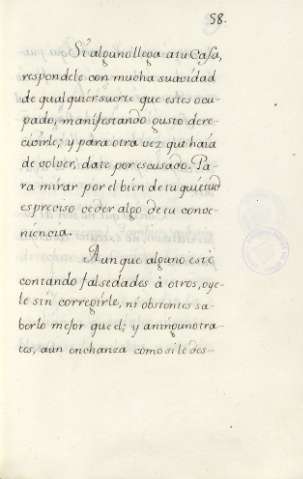 58.
Si alguno llega a tu Casa,
respondele con mucha suavidad
de qualquier suerte que estes ocu-
pado, manifestando gusto de re-
civirle; y para otra vez que haia
de volver, date por escusado. Pa-
ra mirar por el bien de tu quietud
es preciso ceder algo de tu conve-
niencia.
Aunque alguno esté
contando falsedades à otros, oye-
le sin corregirle, ni obstentes sa-
berlo mejor que el; y a ninguno tra-
tes, aun en chanza como si le des-